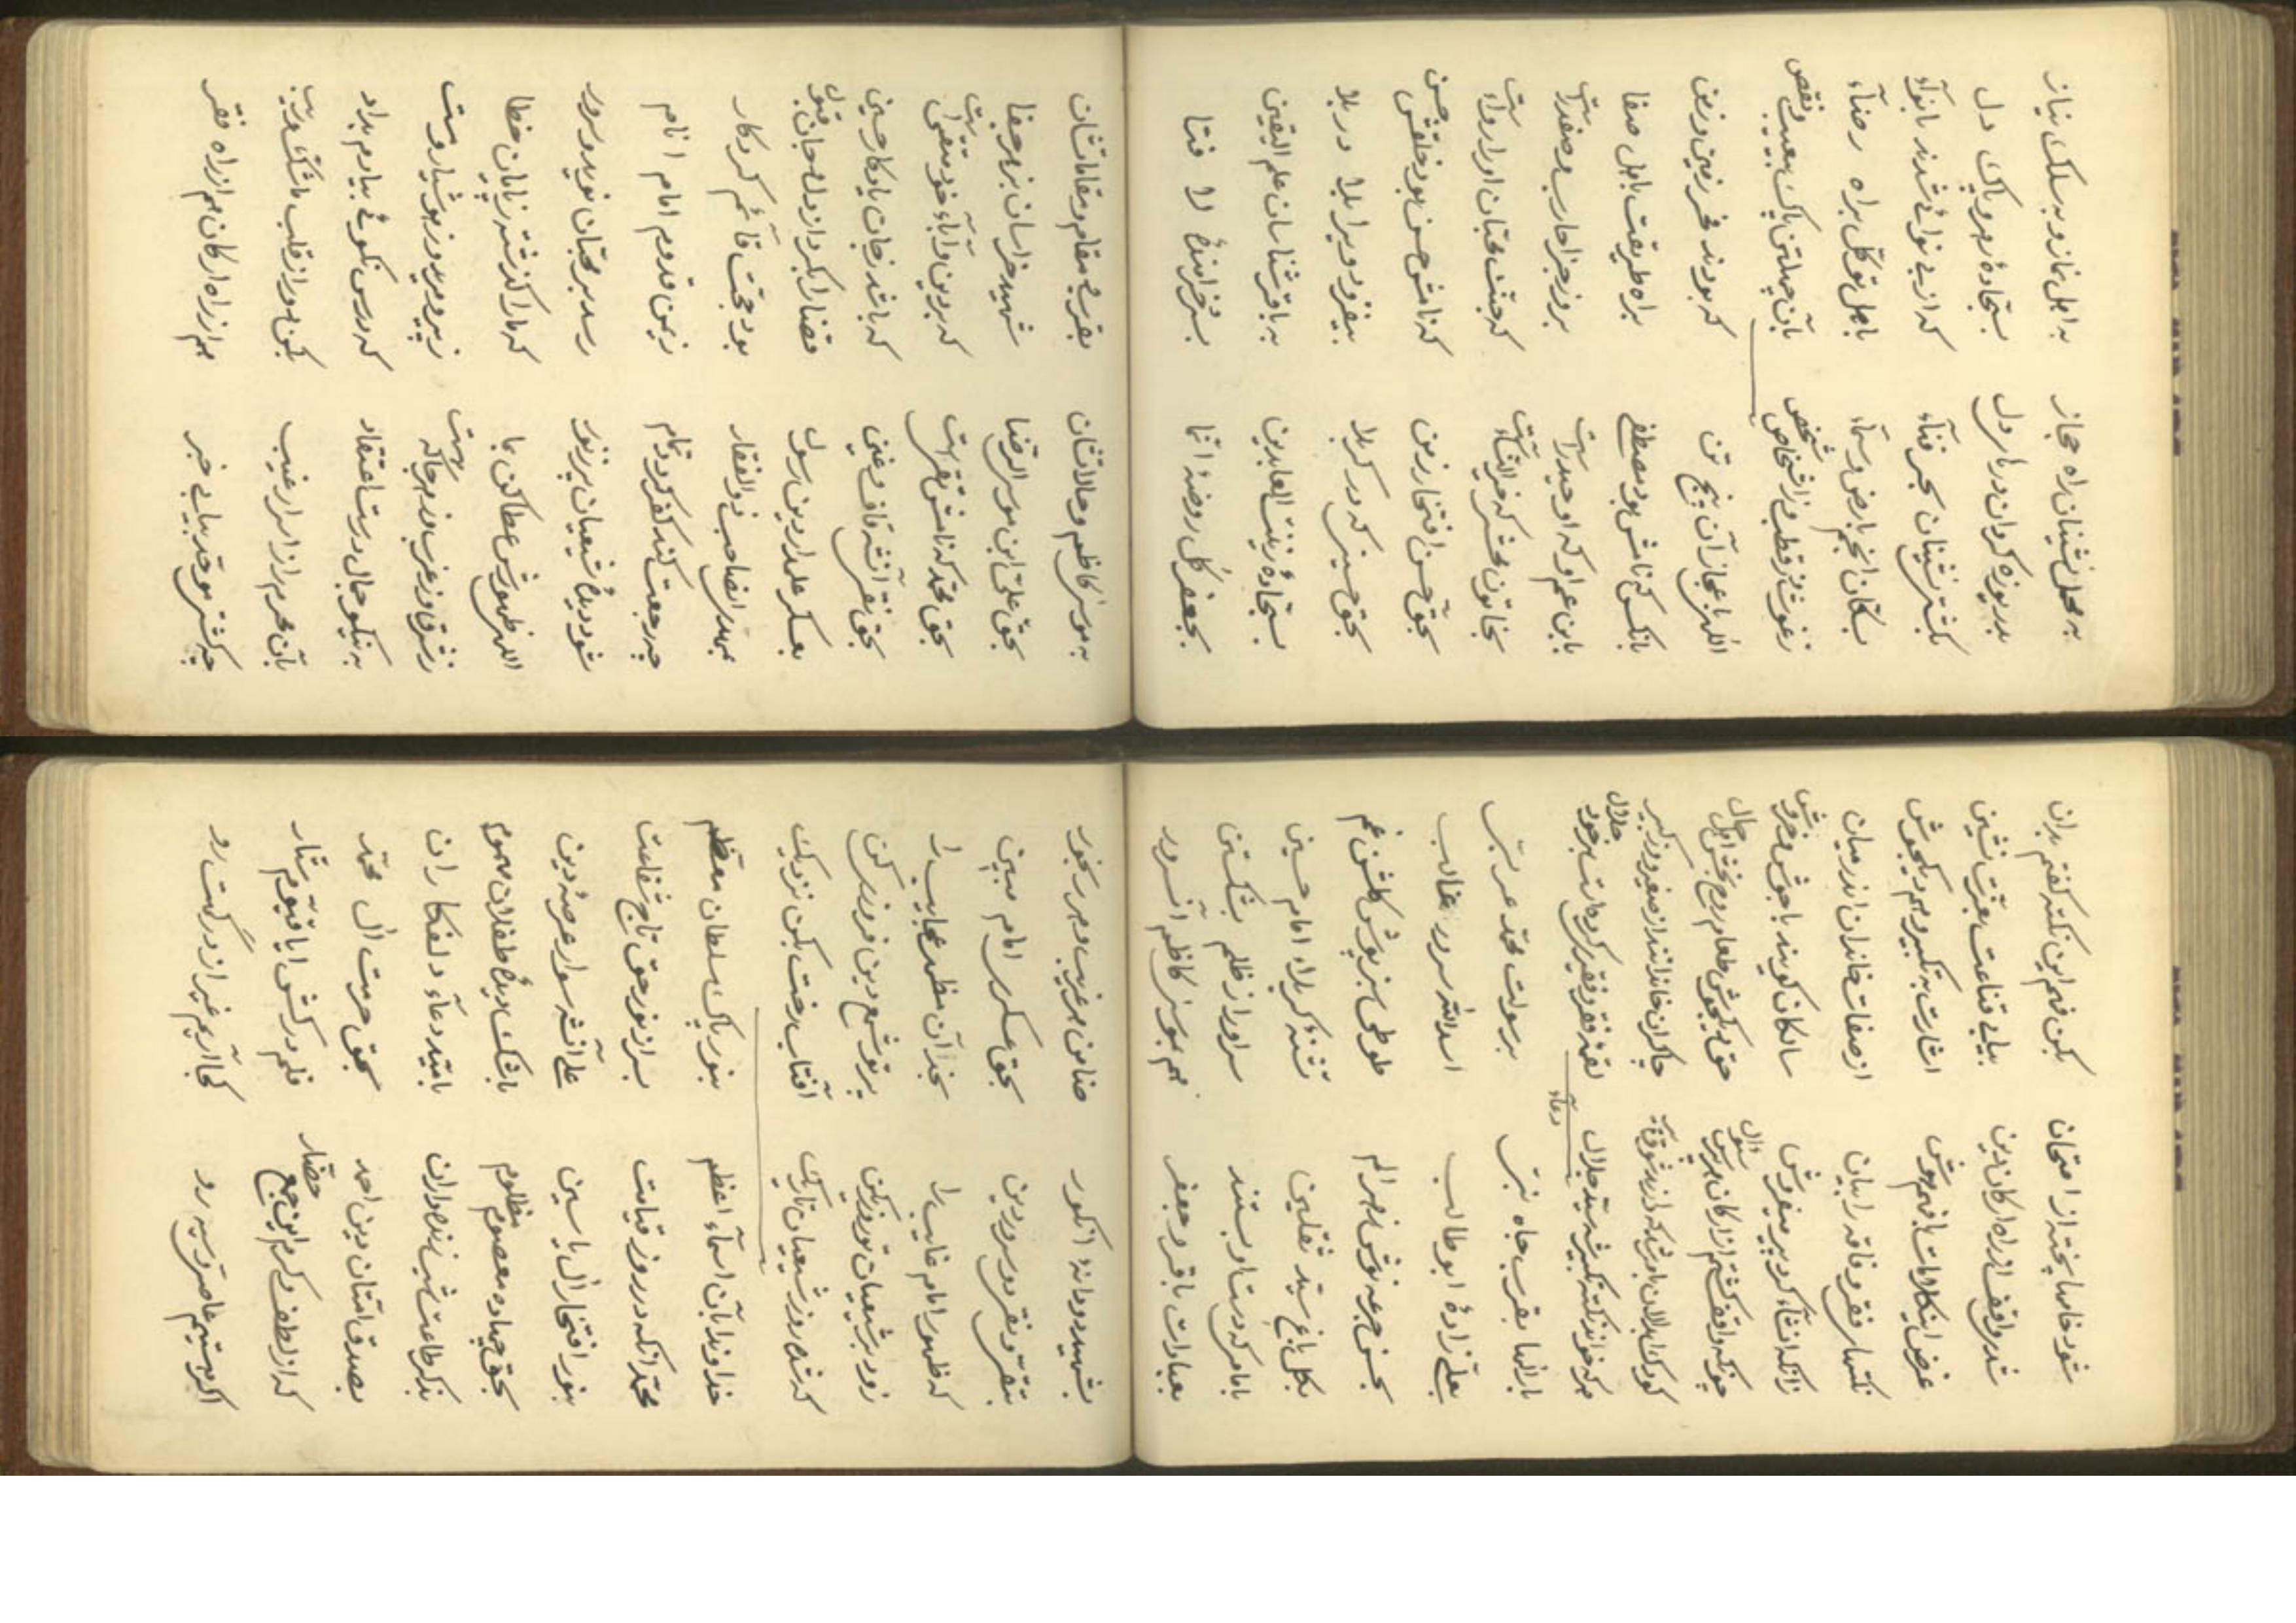 به محفل نشینان راه حجاز به اهل نماز و به سلک نیاز
بدریوزه کردان دربار دل بسجادهٔ مهر و پاک دل
بکشتی نشینان بحر فنآء که از بی نوائی شدند بانوآء
بسکان انجم بارض و سمآء باهل توکل براه رضآء
زغوث و ز قطب و ز اشخاص شخص بآن چهلتن پاک بیعیب و نقص
اللهی باعجاز آن پنج تن که بودند فخر زمین و زمن
بانکس که نامش بود مصطفی براه طریقت باهل صفا
باین عم او که او حیدراست بروز جزا حارب و صفدراست
بخاتون محشر که خیرالنساءست که جنت محبان اورا رواست
بحق حسن افتخار زمن که نامش حسن بود خلقش حسن
بحق حسینی که در کربلا بیفزود ویرا بلا در بلا
بسجادهٔ زینت العابدین به باقر شناسان علم الیقین
بجعفر کل روضهٔ انما بسرخیل لا فتا
به موسئ کاظم و حالاتشان بقرب و مقام و مقاماتشان
بحق علی ابن موسی الرضا شهید خراسان بزهر جفا
بحق محمد که نامش تقی است که بر دین و آباء خود متقی است
بحق نقی آنشه قاف و غین که باشد ز جان یادکار حسین
بعسکر علمدار دین رسول قضا را بکرد از دل و جان قبول
بمهدی انصاحب ذوالفقار بود حجت قائم کردکار
چه رجعت کند کفر کردد تمام زیمن قدوم امام انام
شود دیدهٔ شیعیان پر ز نور رسد بر محبان نوید و سرور
اللهی ظهورش عطا کن بما که ما را کذشته زمان خطا
زشرق و زغرب و زهر جا که هست زپیر و مرید و زهوشیار و مست
به نیکو جمال و درست اعتقاد که درس نکوئی بیادم بداد
بآن محرم راز اسرار غیب بکن دور از قلب ما شک و ریب
چه کشتی موحد بیابی خبر هم از راه ارکان هم از راه فقر
شود خامها پخته از امتحان بکن فهم این نکته کفتم بدان
شدی واقف از راه ارکان دین بیابی قناعت بعزت نشین
غرض اینکلامات بافهم و هوش اشارت به تکبیر و هم دیکجوش
نکتهای فقر و فاقه را بیان از صفات خاندان اندر میان
زانکه انشاء کرد پیر میفروش سالکان کویند باجوش و خروش
چونکه واقف کشتم از ارکان پرسش سئوال حق دیکجوش طعام روح بخش اهل حال
کودک ابدالان بادرش که داند شوقیا چاکران خاندانند از صغیر و ز کبیر
هر که خواند نکته تکبیر شه سید جلال لقمهٔ فقر و فقیری کرده است برخود حلال
دعاء
بارالها بقرب جاه نبی برسولت محمد عربی
بعلی زادهٔ ابوطالب اسدالله سرور غالب
بحسن جرعه نوش زهر الم طوطی سبز پوش کلشن غم
بکل باغ سید ثقلین تشنهٔ کربلا امام حسین
بامامی که دست او بستند سر او را ز ظلم بشکستند
بعبادات باقر و جعفر هم بموسئ کاظم آنسرور
بشهید و دانهٔ انکور ضامن هر غریب و هر رنجور
بتقی و نقی دو سرور دین بحق عسکری امام مبین
که ظهور امام غایب را بخدا آن مظهر عجایب را
زود بر شیعیان تو روز کن پرتو شمع دین فروزی کن
که شده روز شیعیان تاریک آفتاب رخت بکن نزدیک
خداوندا بآن اسمآء اعظم بنور پاک سلطان معظم
محمد آنکه در روز قیامت بسر از نور حق تاج شفاعت
بنور افتخار آل یاسین علی آنشه سوار عرصهٔ دین
بحق چهارده معصوم مظلوم باشک دیدهٔ طفلان مهموم
بذکر طاعت شب زنده داران بامید دعآء دلفکاران
بصدق امتنان دین احمد بحق حرمت آل محمد
که از لطف و کرم این جمع حضار قلم درکش ایا قیوم ستار
اکر هستیم عاصی و سیه رو کجا آریم غیر از درکهت رو